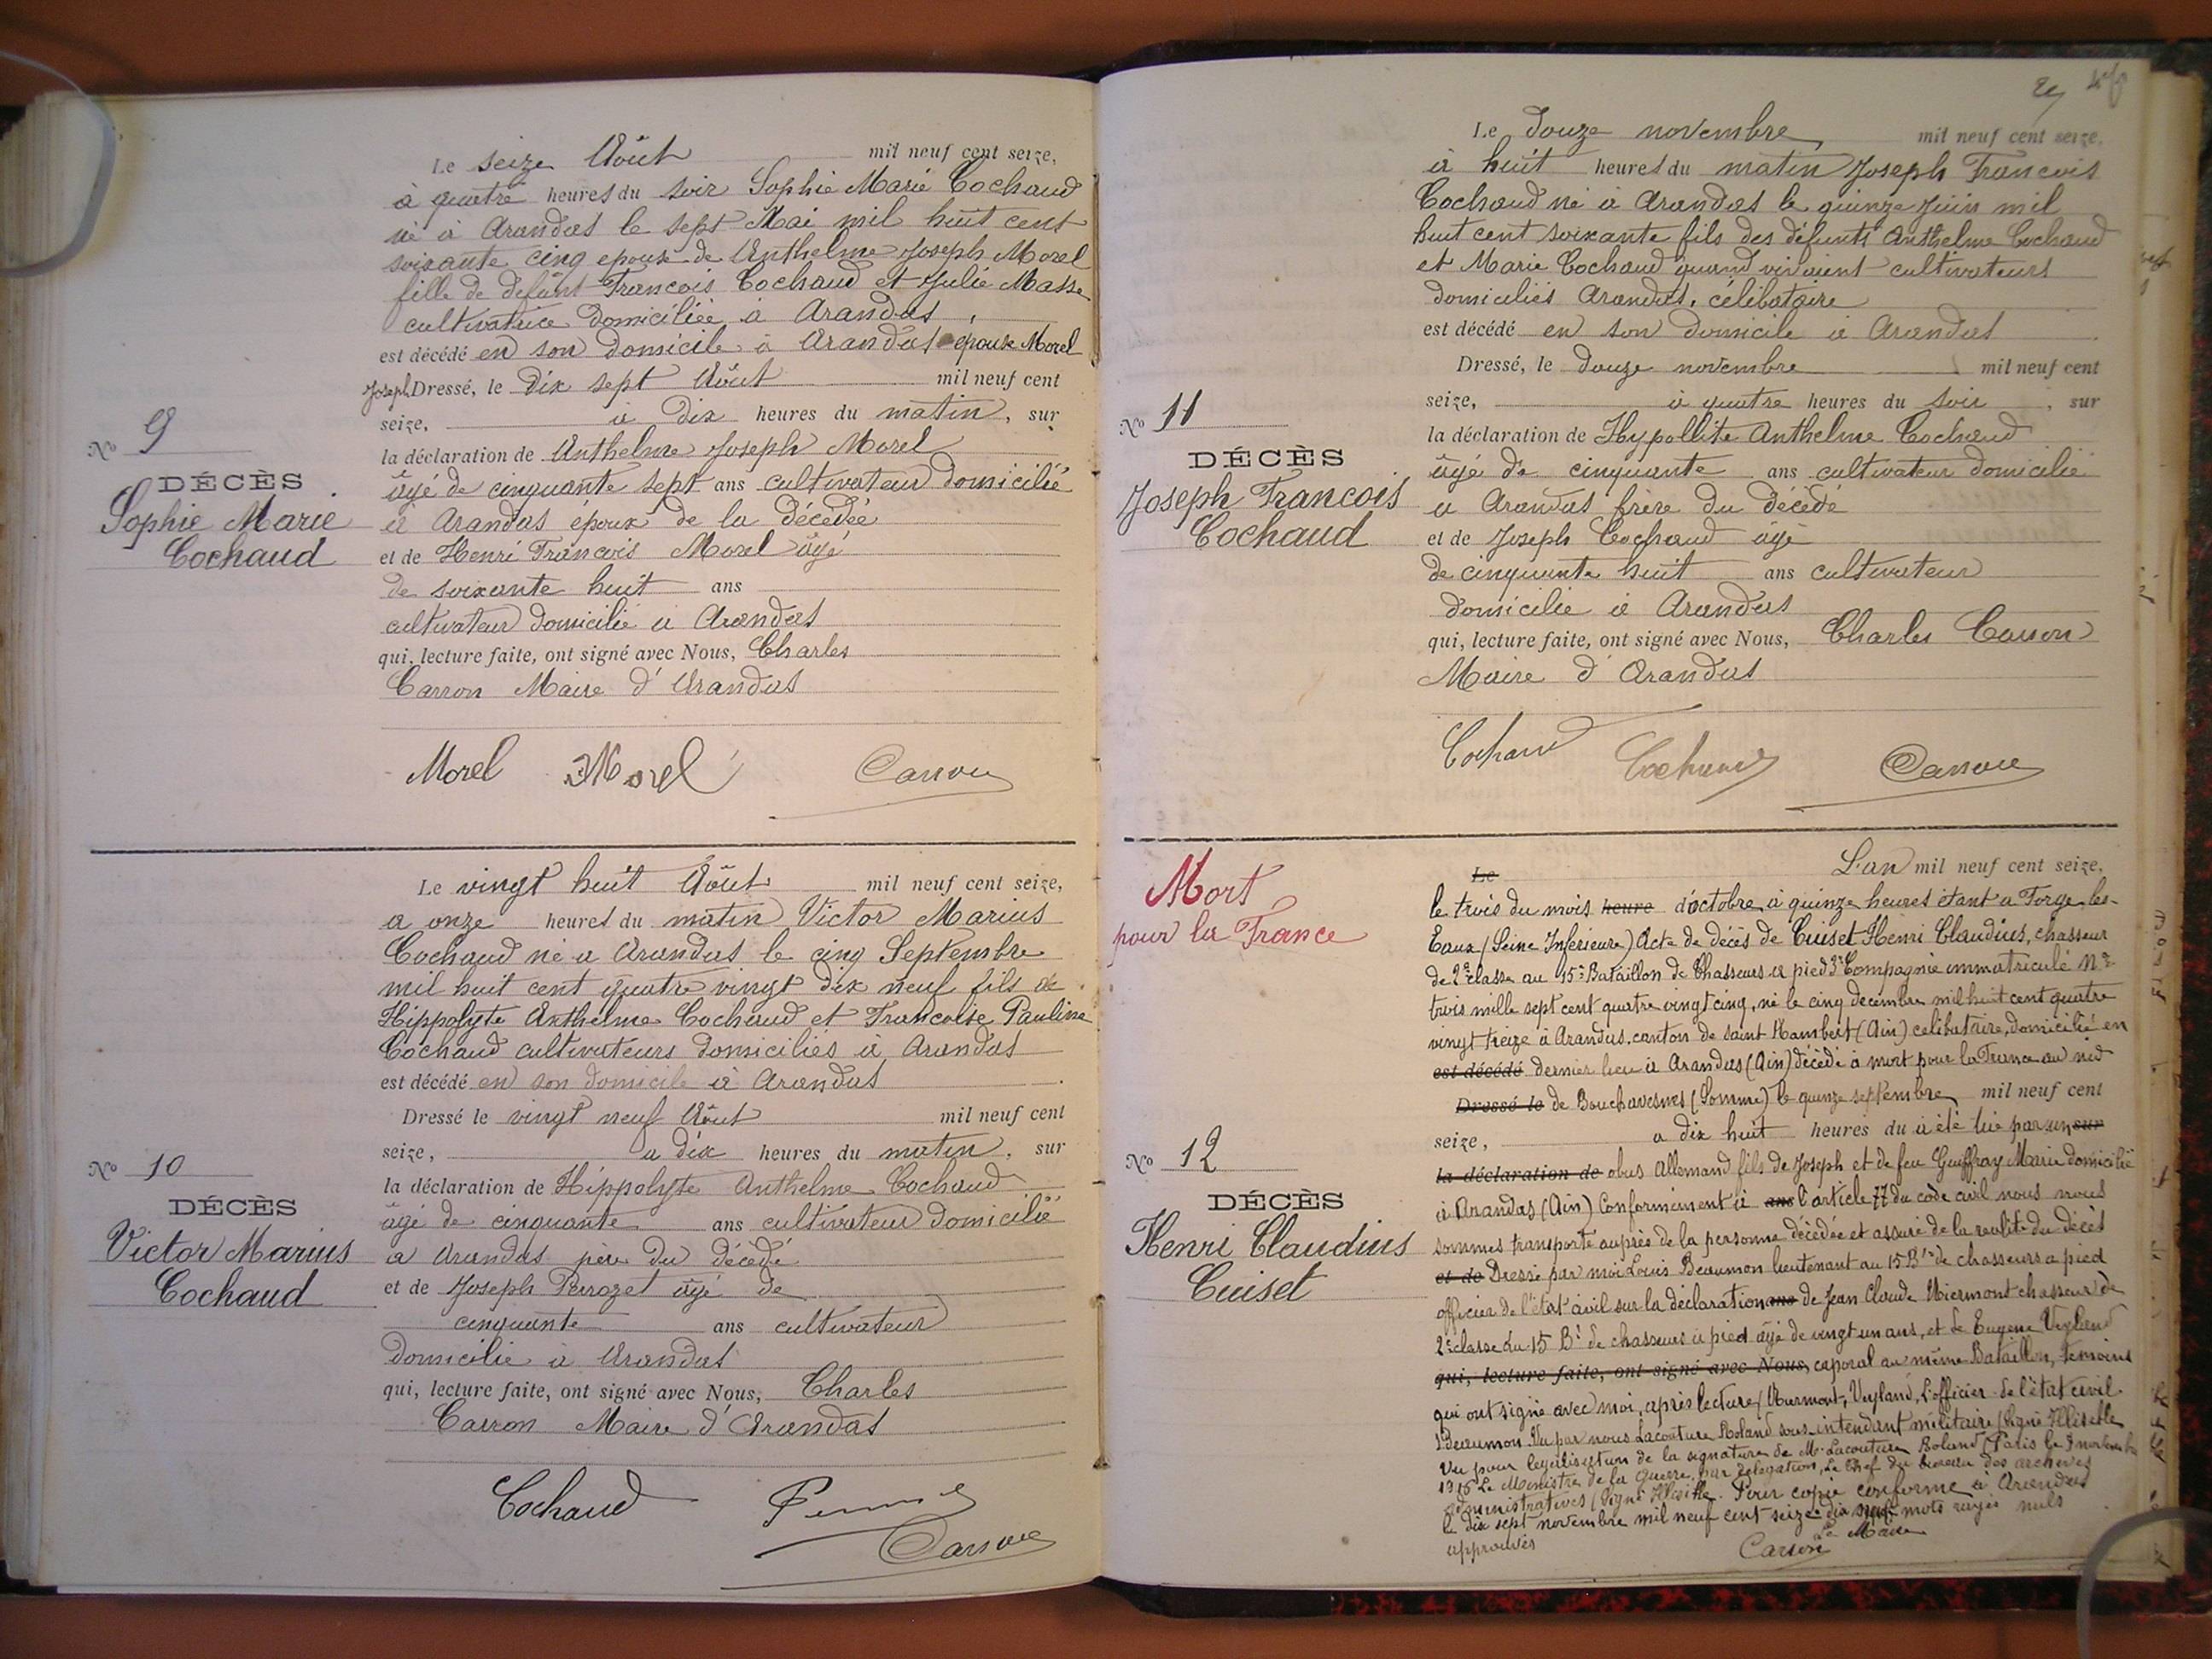 Le seize Août mil neuf cent seize,
à quatre heures du soir Sophie Marie Cochaud
né à Arandas le sept Mai mil huit cent
soixante cinq epouse de Anthelme Joseph Morel
fille de défunt Francois Cochaud et Julie Masse
cultivatrice domiciliée à Arandas,
est décédé en son domicile à Arandas épouse Morel
Joseph Dressé, le dix sept Août mil neuf cent
seize, à dix heures du matin, sur
la déclaration de Anthelme Joseph Morel
âgé de cinquante sept ans cultivateur domicilié
à Arandas époux de la décédée
et de Henri Francois Morel âgé
de soixante huit ans
cultivateur domicilié à Arandas
qui, lecture faite, ont signé avec Nous, Charles
Carron Maire d'Arandas
Morel Morel Carron
No 9
DÉCÈS
Sophie Marie
Cochaud
Le vingt huit Août mil neuf cent seize,
a onze heures du matin Victor Marius
Cochaud né a Arandas le cinq Septembre
mil huit cent quatre vingt dix neuf fils de
Hippolyte Anthelme Cochaud et Francoise Pauline
Cochaud cultivateurs domiciliés à Arandas
est décédé en son domicile à Arandas
Dressé le vingt neuf Août mil neuf cent
seize, a dix heures du matin, sur
la déclaration de Hippolyte Anthelme Cochaud
âgé de cinquante ans cultivateur domicilié
a Arandas père du décédé
et de Joseph Perrozet âgé de
cinquante ans cultivateur
domicilié à Arandas
qui, lecture faite, ont signé avec Nous, Charles
Carron Maire d'Arandas
Cochaud
Carron
No 10
DÉCÈS
Victor Marius
Cochaud
Le douze novembre mil neuf cent seize,
à huit heures du matin Joseph Francois
Cochaud né à Arandas le quinze Juin mil
huit cent soixante fils des défunts Anthelme Cochaud
et Marie Cochaud quand vivaient cultivateurs
domiciliés Arandas, célibataire
est décédé en son domicile à Arandas
Dressé, le douze novembre mil neuf cent
seize, à quatre heures du soir, sur
la déclaration de Hypollite Anthelme Cochaud
âgé de cinquante ans cultivateur domicilié
a Arandas frère du décédé
et de Joseph Cochaud âgé
de cinquante huit ans cultivateur
domicilié à Arandas
qui, lecture faite, ont signé avec Nous, Charles Carron
Maire d'Arandas
Cochaud Cochaud Carron
No 11
DÉCÈS
Joseph Francois
Cochaud
Mort
pour la France
Le L'an mil neuf cent seize,
le trois du mois heure d'octobre à quinze heures étant a Forge-les-
Eaux (Seine Inférieure) Acte de décès de Cuiset Henri Claudius, chasseur
de 2e classe au 15e Bataillon de Chasseurs à pied 3e Compagnie immatriculé No
trois mille sept cent quatre vingt cinq, né le cinq décembre mil huit cent quatre
vingt treize à Arandas, canton de saint Rambert (Ain) celibataire, domicilié en
est décédé dernier lieu à Arandas (Ain) décédé à mort pour la France au nid
Dressé le de Bouchavesnes (Somme) le quinze septembre mil neuf cent
seize, a dix huit heures du a été tué par un sur
la déclaration de obus Allemand fils de Joseph et de feu Guiffray Marie domicilié
à Arandas (Ain) Conformément à ans l'article 77 du code civil nous nous
sommes transporté auprès de la personne décédée et assuré de la réalité du décès
et de Dressé par moi Louis Beaumon lieutenant au 15 Bon de chasseurs a pied
officier de l'état civil sur la déclaration ans de Jean Claude Miermont chasseur de
2e classe du 15 Bt de chasseurs à pied âgé de vingt un ans, et de Eugène Veyland
qui, lecture faite, ont signé avec Nous, caporal au même Bataillon, témoins
qui ont signé avec moi, après lecture, Veyland, L'officier de l'état civil
Beaumon. Vu par nous Lacouture Roland sous-intendant militaire (signé Illisible
Vu pour légalisation de la signature de Mr Lacouture Roland (Paris le 9 novembre
1916 Le Ministre de la Guerre, par délégation, Le Chef du bureau des archives
administratives (Signé Illisible. Pour copie conforme à Arandas
le dix sept novembre mil neuf cent seize mots rayés nuls
approuvés Le Maire
Carron
No 12
DÉCÈS
Henri Claudius
Cuiset